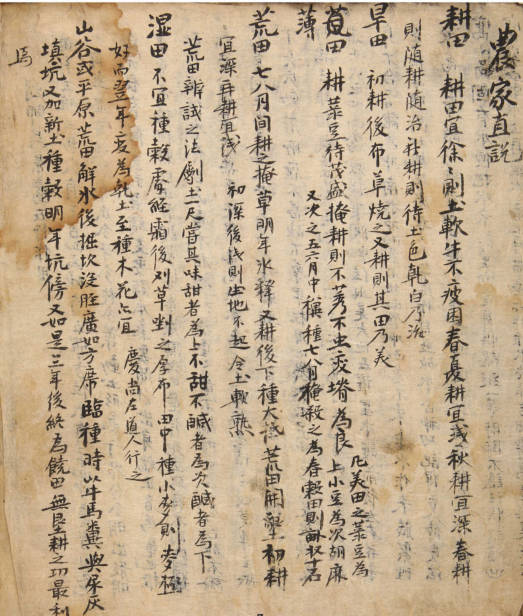 農家直說
耕田 耕田宜徐〻則土軟牛不疲困春夏耕宜淺秋耕宜深春耕
則隨耕隨治秋耕則待土色乾白乃治
旱田 初耕後布草燒之又耕則其田乃美
薄田 耕菉豆待茂盛掩耕則不莠不虫變塉為良 凡美田之菉豆為
上小豆為次胡麻
又次之五六月中穊種七八月掩殺之為春穀田則畝收十石
荒田 七八月間耕之掩草明年氷釋又耕後下種大抵荒田開墾初耕
宜深再耕宜淺 初深後淺則生地不起令土軟熟
荒田辨試之法劚土一尺嘗其味甜者為上不甜不鹹者為次鹹者為下
濕田 不宜種穀處經霜後刈草剉之厚布田中種小麥則麥極
好而翌年变為乾土至種木花亦宜 慶尚左道人行之
山谷或平原荒田解氷後掘坎深 廣如方席臨種時以牛馬糞與尿灰
填坑又加新土種穀明年坑傍又如是三年後終為饒田無墾耕之功最利
焉